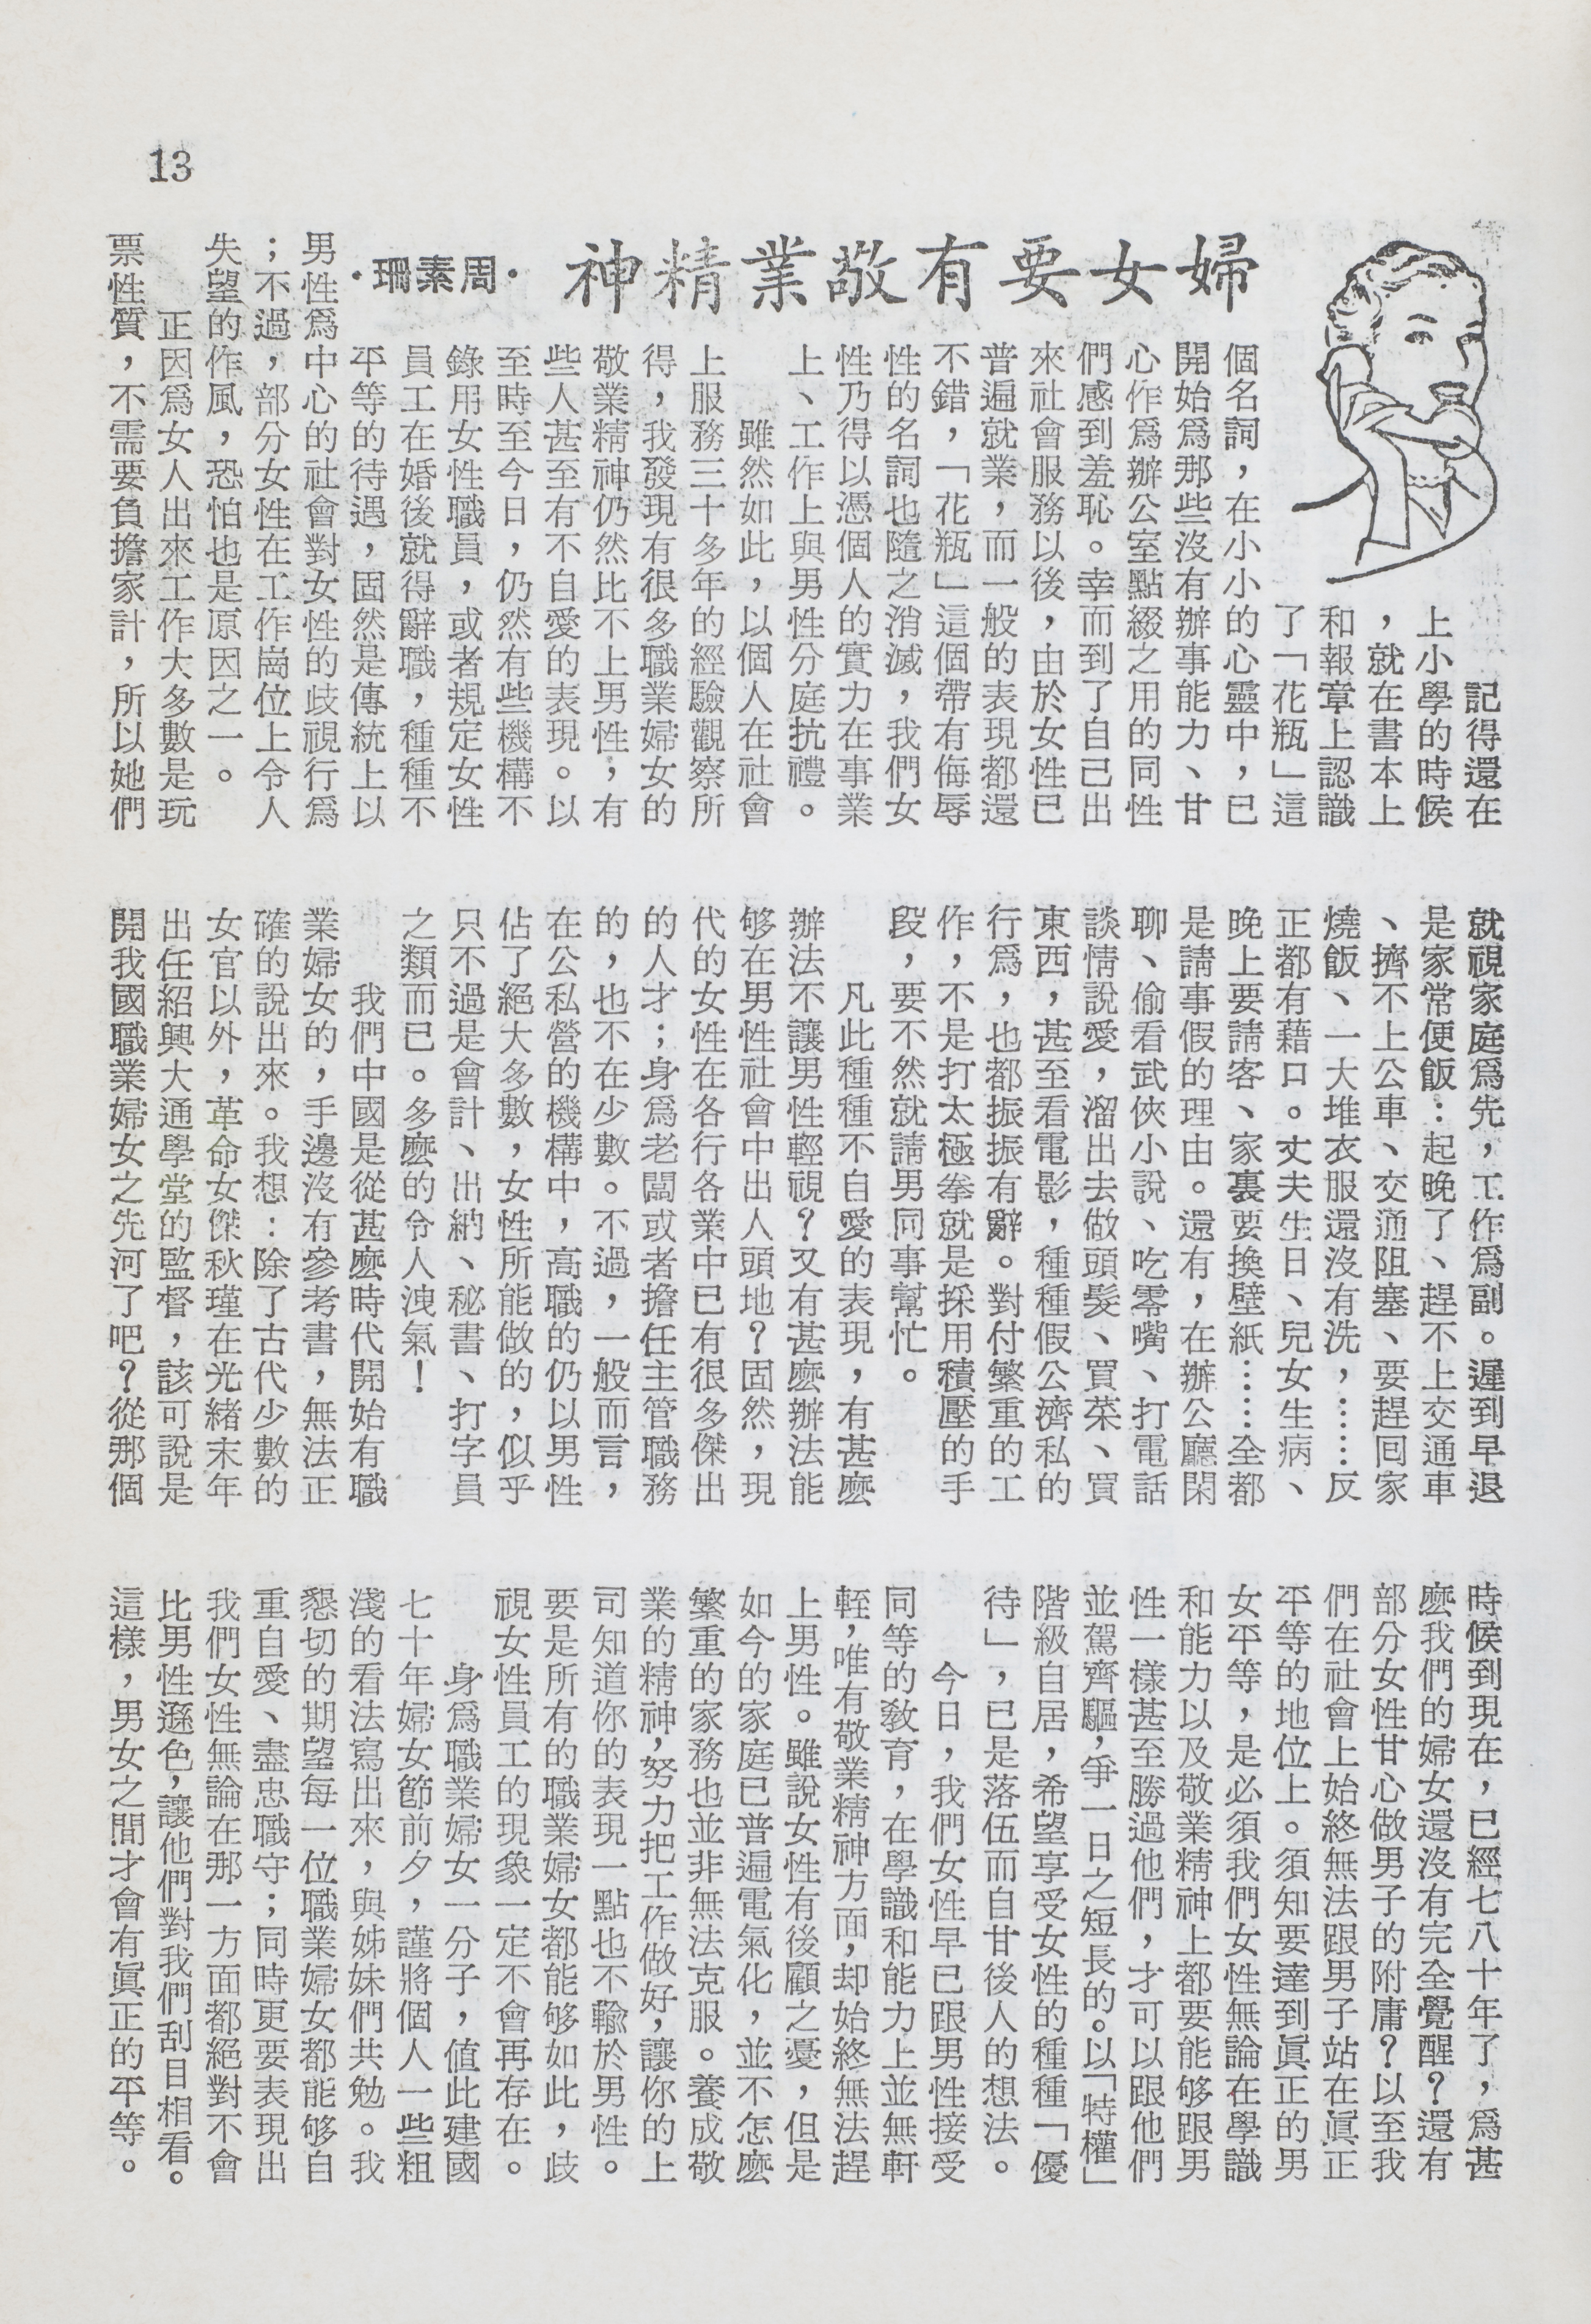 13
婦女要有敬業精神
·周素珊·
記得還在
上小學的時候
，就在書本上
和報章上認識
了「花瓶」這
個名詞，在小小的心靈中，已
開始爲那些沒有辦事能力、甘
心作爲辦公室點綴之用的同性
們感到羞恥。幸而到了自己出
來社會服務以後，由於女性已
普遍就業，而一般的表現都還
不錯，「花瓶」這個帶有侮辱
性的名詞也隨之消滅，我們女
性乃得以憑個人的實力在事業
上、工作上與男性分庭抗禮。
雖然如此，以個人在社會
上服務三十多年的經驗觀察所
得，我發現有很多職業婦女的
敬業精神仍然比不上男性，有
些人甚至有不自愛的表現。以
至時至今日，仍然有些機構不
錄用女性職員，或者規定女性
員工在婚後就得辭職，種種不
平等的待遇，固然是傳統上以
男性爲中心的社會對女性的歧視行爲
；不過，部分女性在工作崗位上令人
失望的作風，恐怕也是原因之一。
正因爲女人出來工作大多數是玩
票性質，不需要負擔家計，所以她們
就視家庭爲先，工作爲副。遲到早退
是家常便飯：起晚了、趕不上交通車
、擠不上公車、交通阻塞、要趕回家
燒飯、一大堆衣服還沒有洗，……反
正都有藉口。丈夫生日、兒女生病、
晚上要請客、家裏要換壁紙……全都
是請事假的理由。還有，在辦公廳閑
聊、偷看武俠小說、吃零嘴、打電話
談情說愛，溜出去做頭髮、買菜、買
東西，甚至看電影，種種假公濟私的
行爲，也都振振有辭。對付繁重的工
作，不是打太極拳就是採用積壓的手
段，要不然就請男同事幫忙。
凡此種種不自愛的表現，有甚麼
辦法不讓男性輕視？又有甚麼辦法能
够在男性社會中出人頭地？固然，現
代的女性在各行各業中已有很多傑出
的人才；身爲老闆或者擔任主管職務
的，也不在少數。不過，一般而言，
在公私營的機構中，高職的仍以男性
佔了絕大多數，女性所能做的，似乎
只不過是會計、出納、秘書、打字員
之類而已。多麼的令人洩氣！
我們中國是從甚麼時代開始有職
業婦女的，手邊沒有參考書，無法正
確的說出來。我想：除了古代少數的
女官以外，革命女傑秋瑾在光緒末年
出任紹興大通學堂的監督，該可說是
開我國職業婦女之先河了吧？從那個
時候到現在，已經七八十年了，爲甚
麼我們的婦女還沒有完全覺醒？還有
部分女性甘心做男子的附庸？以至我
們在社會上始終無法跟男子站在眞正
平等的地位上。須知要達到眞正的男
女平等，是必須我們女性無論在學識
和能力以及敬業精神上都要能够跟男
性一樣甚至勝過他們，才可以跟他們
並駕齊驅，爭一日之短長的。以「特權」
階級自居，希望享受女性的種種「優
待」，已是落伍而自甘後人的想法。
今日，我們女性早已跟男性接受
同等的敎育，在學識和能力上並無軒
輊，唯有敬業精神方面，却始終無法趕
上男性。雖說女性有後顧之憂，但是
如今的家庭已普遍電氣化，並不怎麼
繁重的家務也並非無法克服。養成敬
業的精神，努力把工作做好，讓你的上
司知道你的表現一點也不輸於男性。
要是所有的職業婦女都能够如此，歧
視女性員工的現象一定不會再存在。
身爲職業婦女一分子，值此建國
七十年婦女節前夕，謹將個人一些粗
淺的看法寫出來，與姊妹們共勉。我
懇切的期望每一位職業婦女都能够自
重自愛、盡忠職守；同時更要表現出
我們女性無論在那一方面都絕對不會
比男性遜色，讓他們對我們刮目相看。
這樣，男女之間才會有眞正的平等。